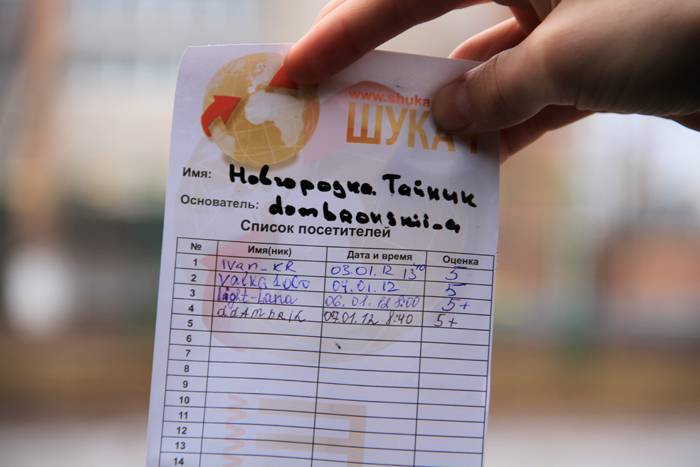 www.shuka
ШУКАЧ
Имя: Новгородка. Тайник
Основатель: dombrovskii_a
Список посетителей
№ Имя(ник) Дата и время Оценка
1 Ivan_KR 03.01.12 13 40 5
2 04.01.12 5
3 Light-Lana 06.01.12 5+
4 07.01.12 8:40 5+
5
6
7
8
9
10
11
12
13
14